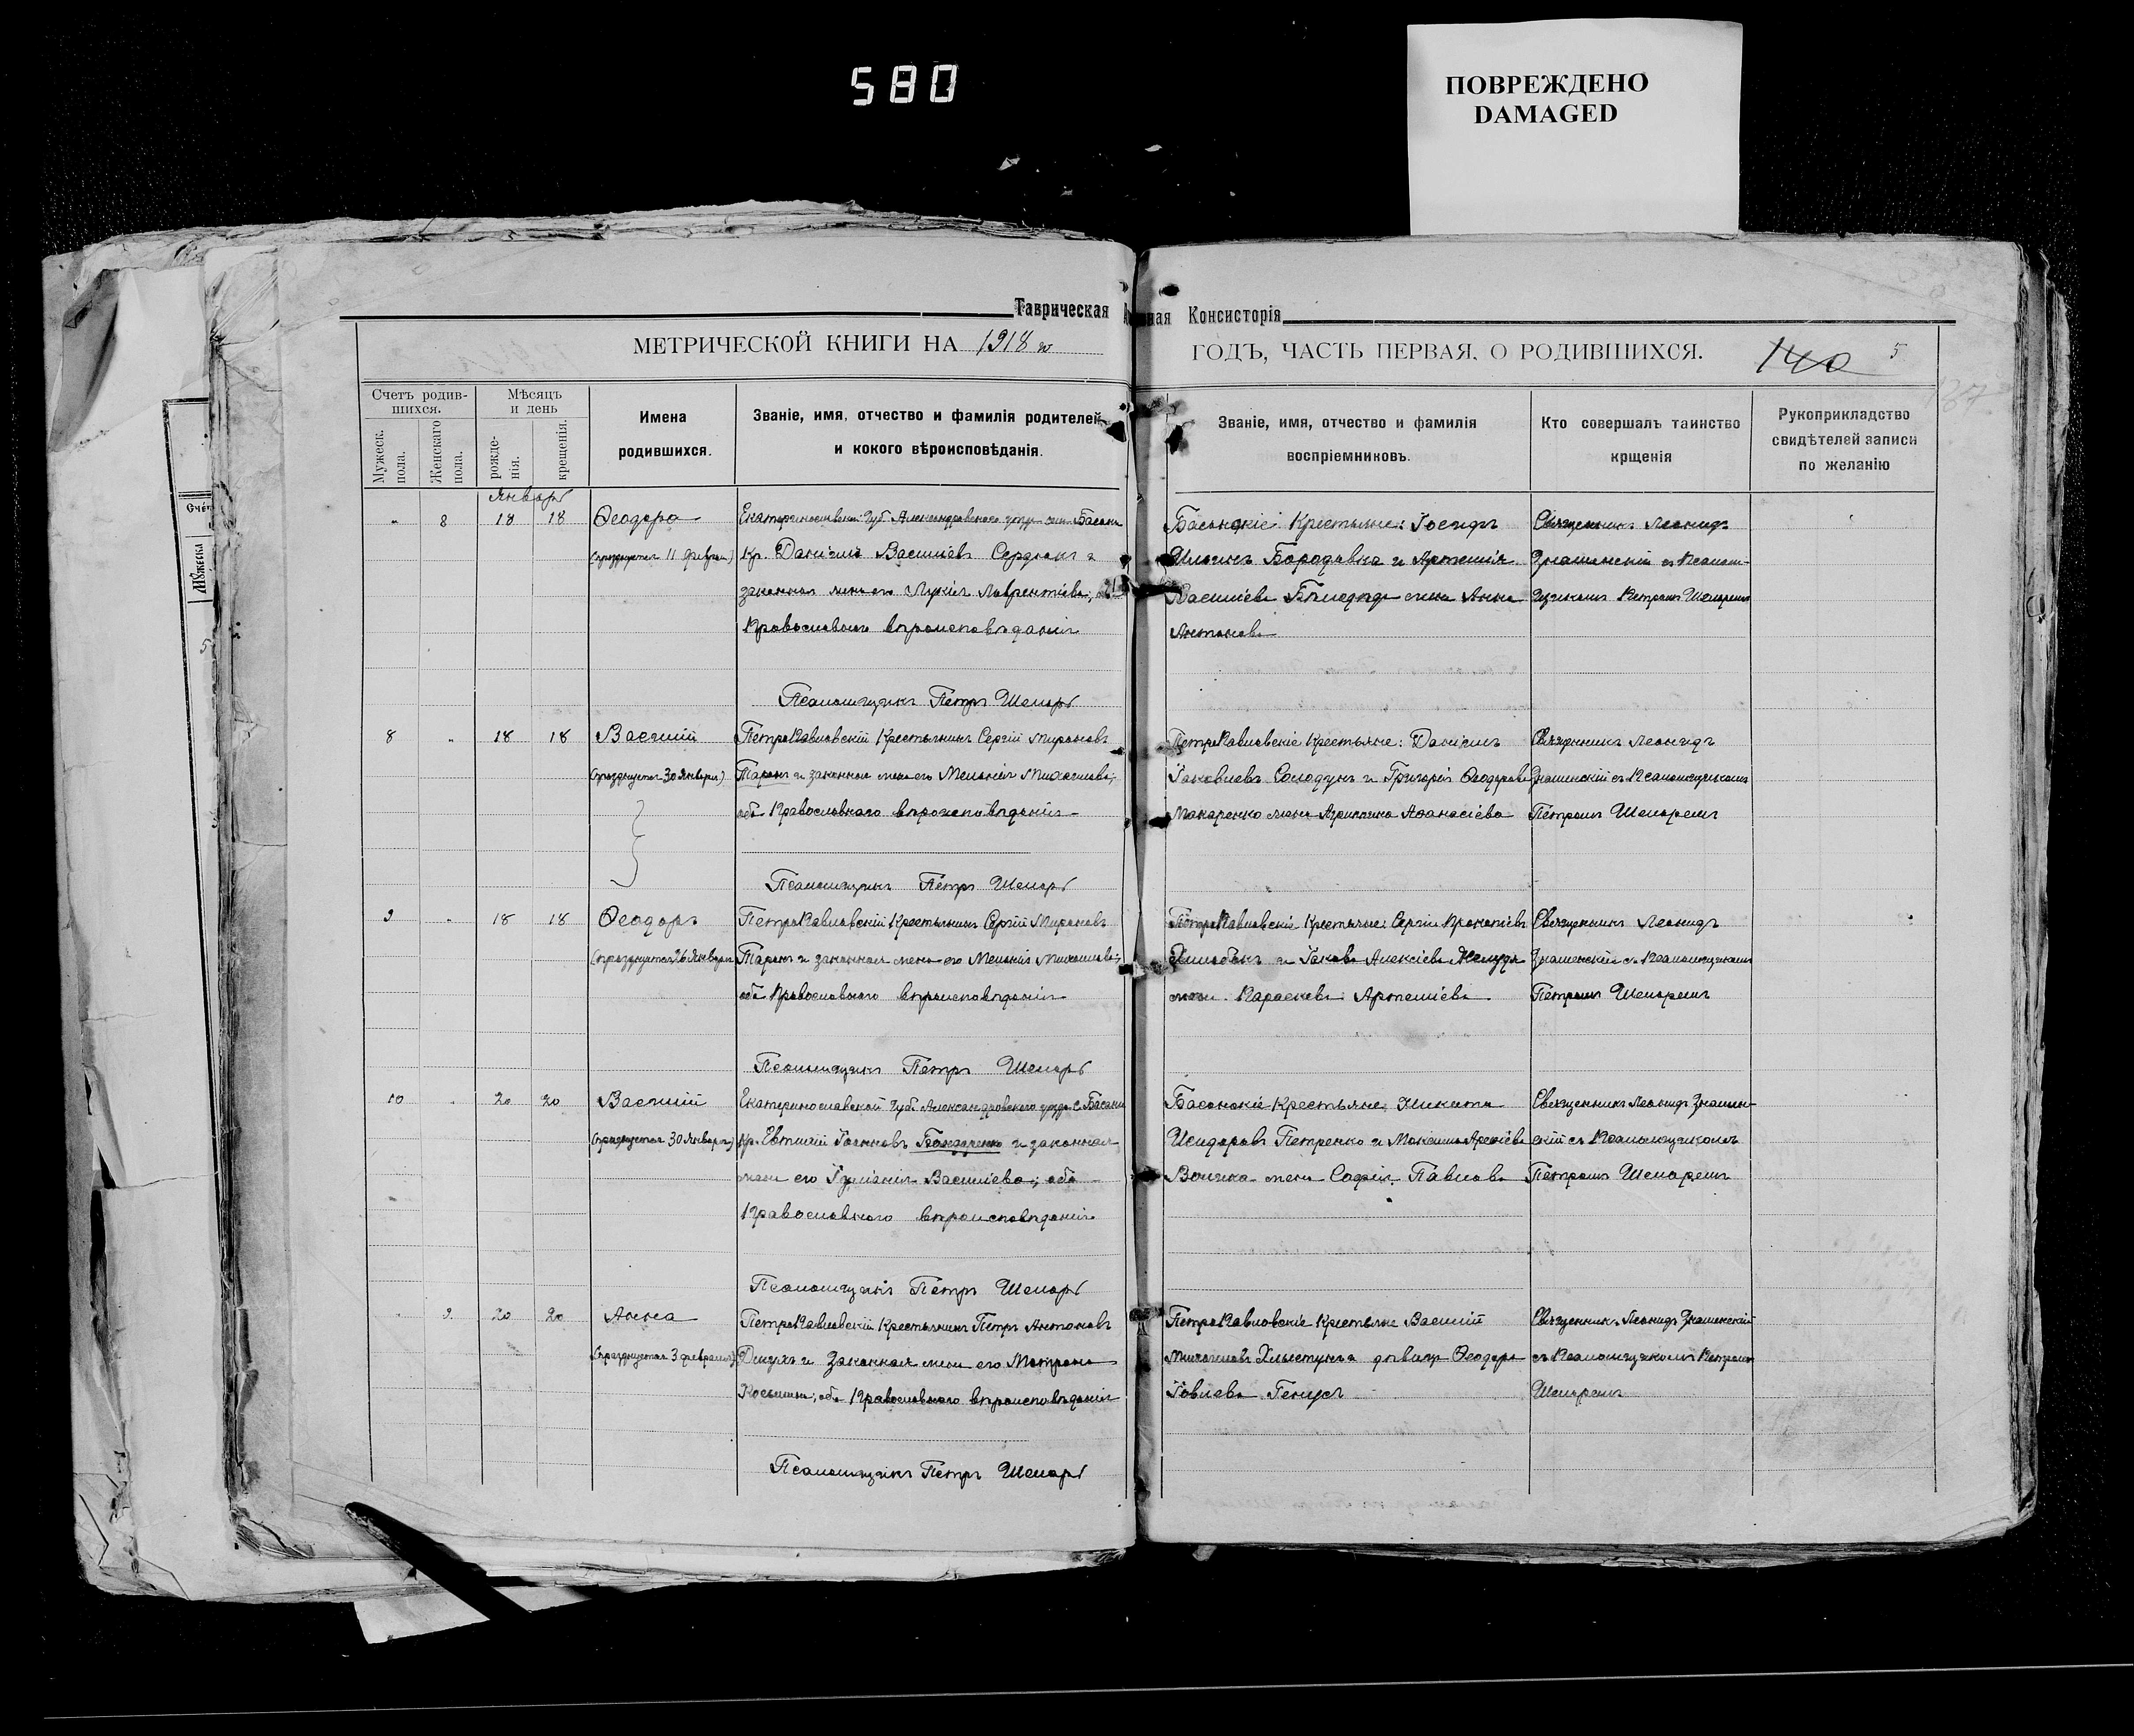 580
ПОВРЕЖДЕНО
DAMAGED
Таврическая
Консисторія
МЕТРИЧЕСКОЙ КНИГИ НА 1918 й
ГОДЪ, ЧАСТЬ ПЕРВАЯ, О РОДИВШИХСЯ.
140 5
137
Счетъ родив-
шихся.
Мужеск. пола.
Женскаго пола.
Мѣсяцъ
и день
рожде-
нія.
крещенія.
Имена
родившихся.
Званіе, имя, отчество и фамилія родителей
и кокого вѣроисповѣданія.
Званіе, имя, отчество и фамилія
воспріемниковъ.
Кто совершалъ таинство
крщенія
Рукоприкладство
свидѣтелей записи
по желанію
Январь
" 8 18 18 Ѳеодора
(празднуется 11 февраля)
Екатеринославской Губ. Александровского уезда села Басани
Кр. Даніилъ Василіевъ Сердюкъ и
законная жена его Лукія Лаврентіева;
Православного вѣроисповѣданія
Псаломщикъ Петръ Шемарь
Басанскіе Крестьяне: Іосифъ
Ильинъ Бородавка и Артемія
Василіева жена Анна
Антонова
Священникъ Леонидъ
Знаменскій съ Псалом-
щикомъ Петромъ Шемаремъ
8 " 18 18 Василій
(празднуется 30 Января)
ПетроПавловскій Крестьянинъ Сергій Мироновъ
Таранъ и законная жена его Меланія Михаилова;
оба Православного вѣроисповѣданія
Псаломщикъ Петръ Шемарь
ПетроПавловскіе Крестьяне: Даніилъ
Іаковлевъ Солодунъ и Григорія Ѳеодорова
Макаренко жена Агриппина Аѳанасіева
Священникъ Леонидъ
Знаменскій съ Псаломщикомъ
Петромъ Шемаремъ
9 " 18 18 Ѳеодоръ
(празднуется 26 Января)
ПетроПавловскій Крестьянинъ Сергій Мироновъ
Таранъ и законная жена его Меланія Михаилова;
оба Православного вѣроисповѣданія
Псаломщикъ Петръ Шемарь
ПетроПавловскіе Крестьяне: Сергій Прокопіевъ
и Іакова Алексіева
жена Параскева Артеміева
Священникъ Леонидъ
Знаменскій съ Псаломщикомъ
Петромъ Шемаремъ
10 " 20 20 Василій
(празднуется 30 Января)
Екатеринославской Губ. Александровского уезда с. Басани
Кр. Евтихій Іоанновъ Бондаренко и законная
жена его Іуліанія Василіева; оба
Православного вѣроисповѣданія
Псаломщикъ Петръ Шемарь
Басанскіе Крестьяне: Никита
Исидоровъ Петренко и Максима Арсеніева
жена Софія Павлова
Священникъ Леонидъ Знамен-
скій съ Псаломщикомъ
Петромъ Шемаремъ
" 9 20 20 Анна
(празднуется 3 февраля)
ПетроПавловскій Крестьянинъ Петръ Антоновъ
и Законная жена его Матрона
Косьмина; оба Православного вѣроисповѣданія
Псаломщикъ Петръ Шемарь
ПетроПавловскіе Крестьяне Василій
Михаиловъ Хлыстунъ и девица Ѳеодора
Іовлева
Священникъ Леонидъ Знаменскій
съ Псаломщикомъ Петромъ
Шемаремъ